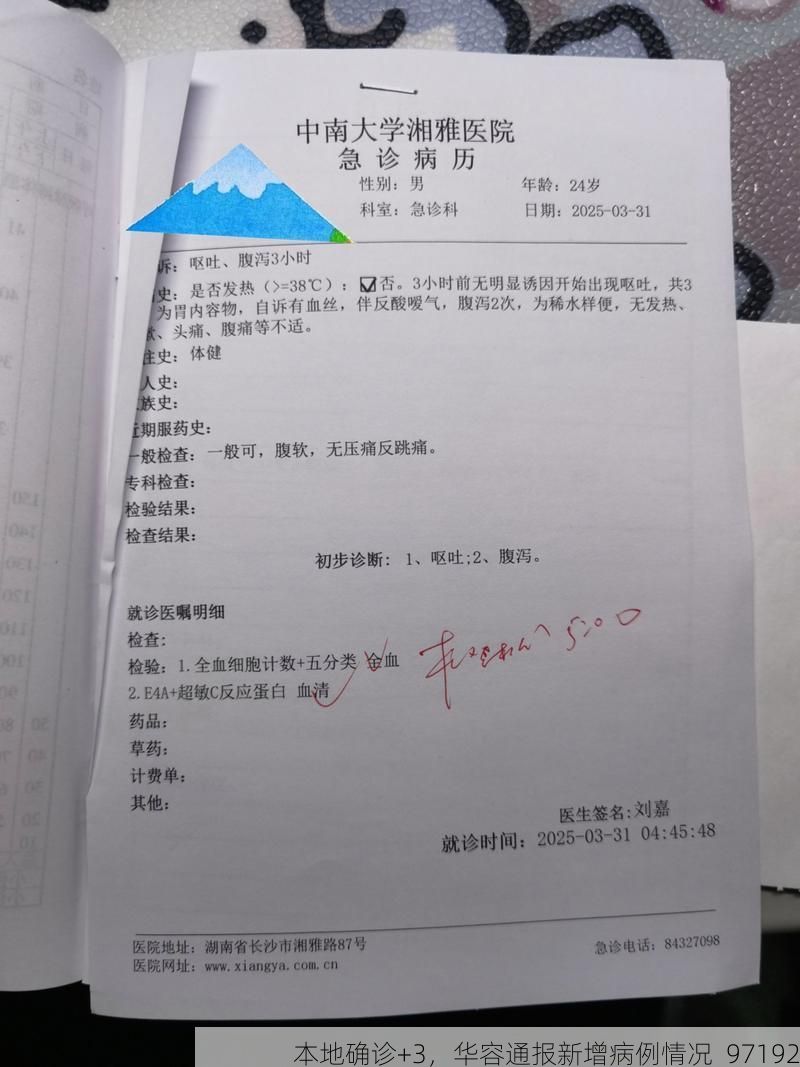 中南大学湘雅医院
急诊病历
性别：男 年龄：24岁
科室：急诊科 日期：2025-03-31
诉：呕吐、腹泻3小时
史：是否发热（>=38℃）：☑否。3小时前无明显诱因开始出现呕吐，共3
为胃内容物，自诉有血丝，伴反酸嗳气，腹泻2次，为稀水样便，无发热、
、头痛、腹痛等不适。
史：体健
人史：
族史：
近期服药史：
一般检查：一般可，腹软，无压痛反跳痛。
专科检查：
检验结果：
检查结果：
初步诊断：1、呕吐;2、腹泻。
就诊医嘱明细
检查：
检验：1.全血细胞计数+五分类 全血
2.E4A+超敏C反应蛋白 血清
5:00
药品：
草药：
计费单：
其他：
医生签名:刘嘉
就诊时间：2025-03-31 04:45:48
医院地址：湖南省长沙市湘雅路87号 急诊电话：84327098
医院网址：www.xiangya.com.cn
本地确诊+3，华容通报新增病例情况 97192